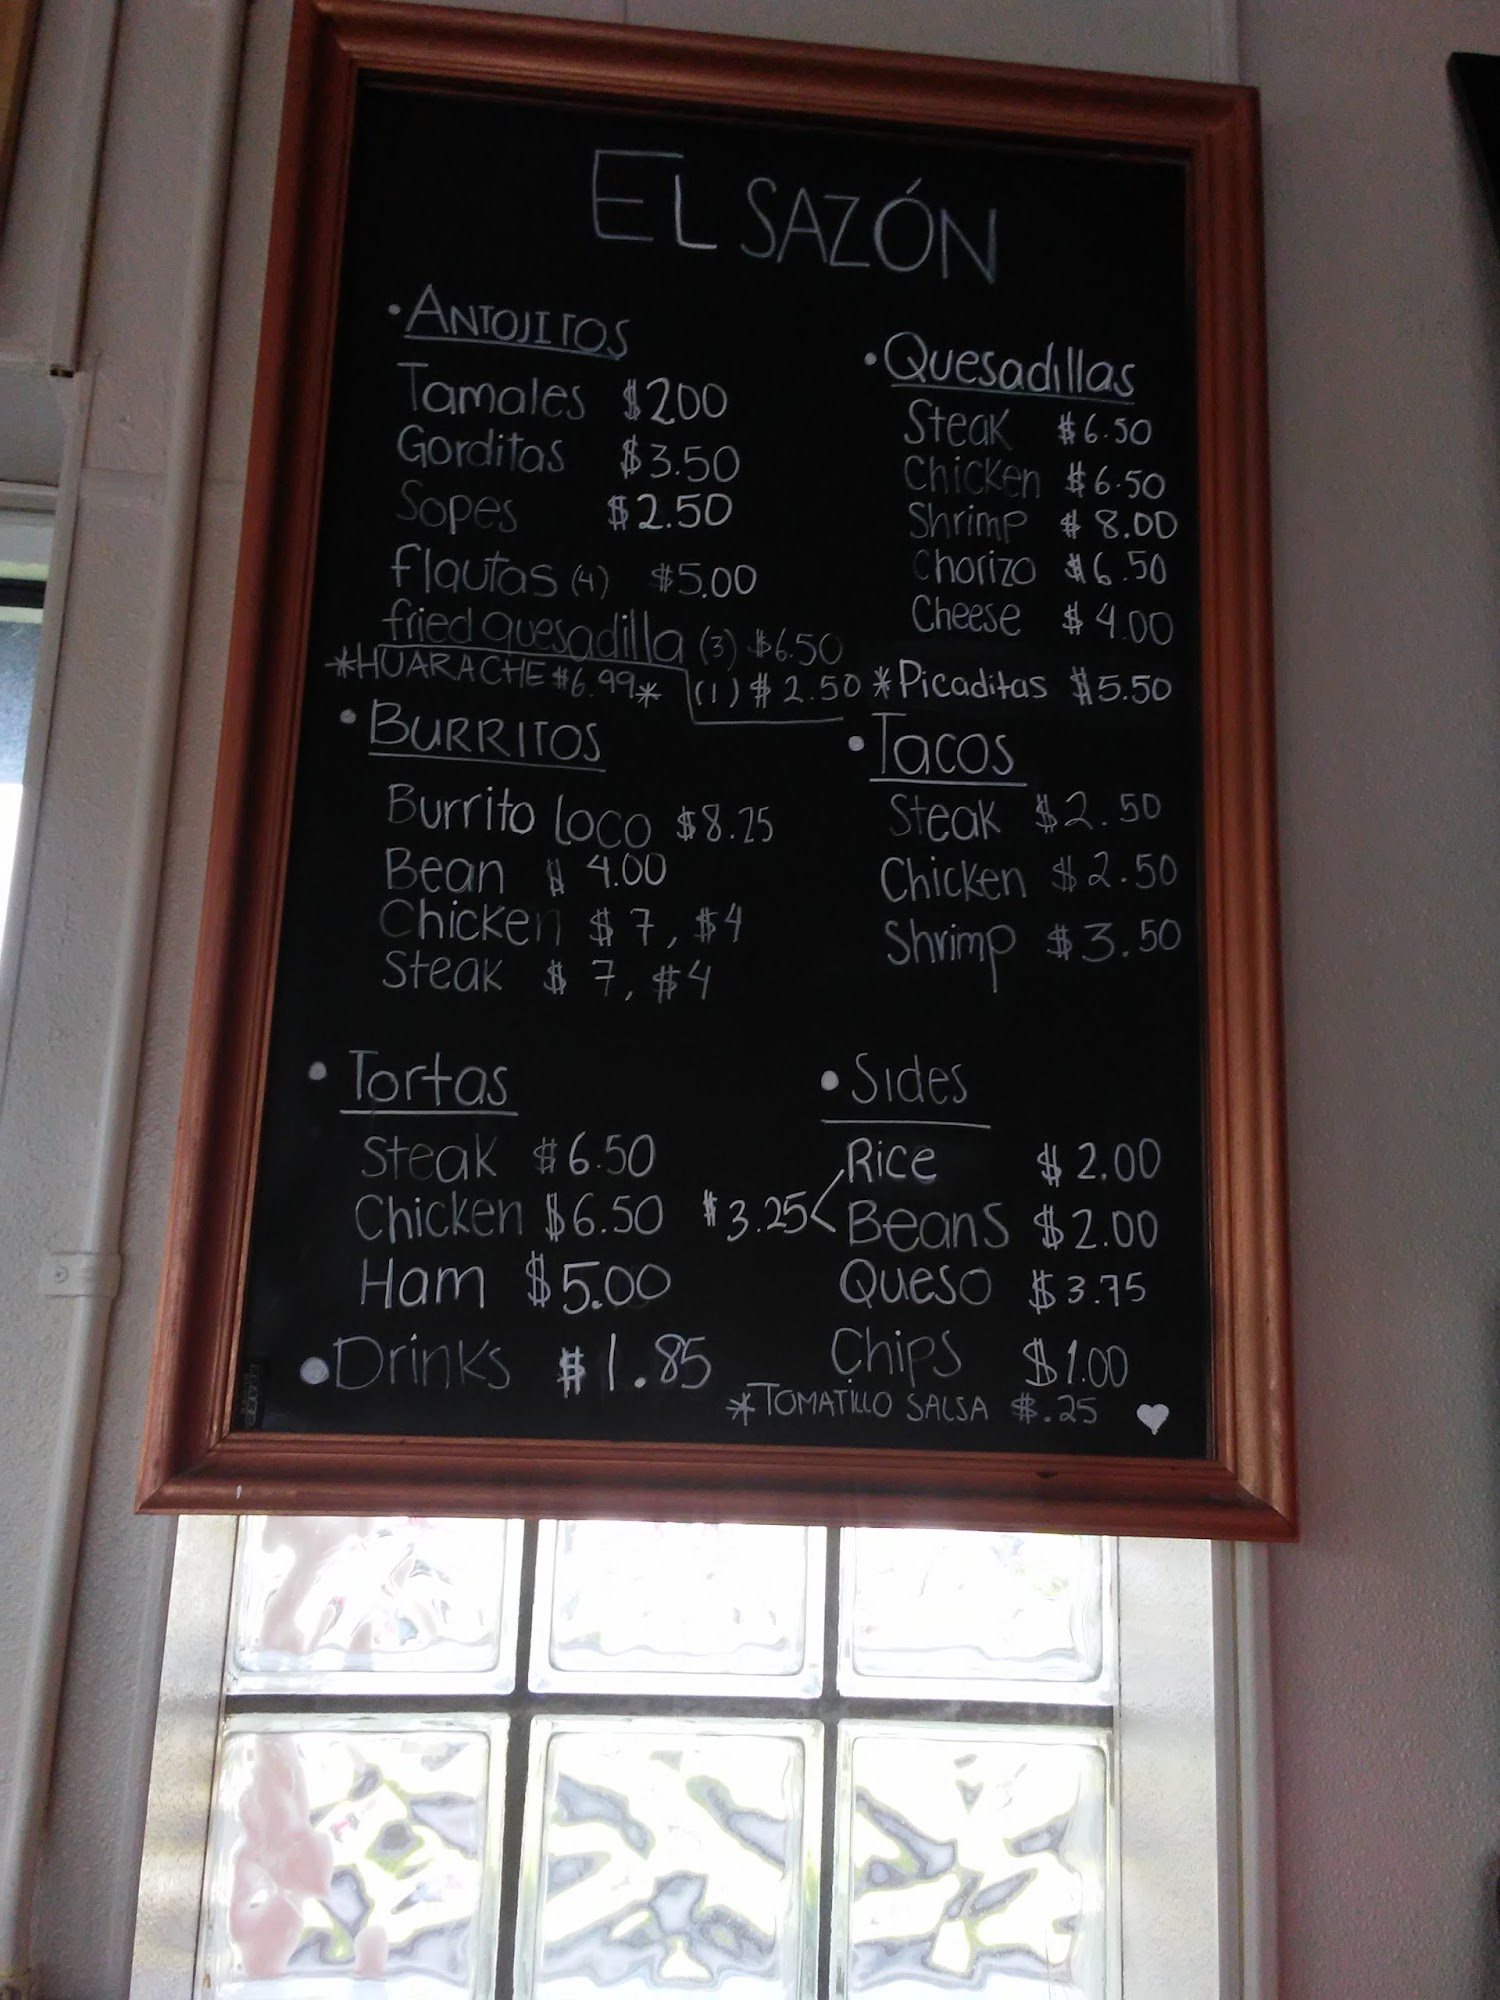 EL SAZÓN
• ANTOJITOS
Tamales $200
Gorditas $3.50
Sopes $2.50
Flautas (4) $5.00
fried quesadilla (3) $6.50
(1) $2.50
*HUARACHE $6.99*
• Quesadillas
Steak $6.50
Chicken $6.50
Shrimp $8.00
Chorizo $6.50
Cheese $4.00
*Picaditas $5.50
• BURRITOS
Burrito Loco $8.25
Bean $4.00
Chicken $7, $4
Steak $7, $4
• Tacos
Steak $2.50
Chicken $2.50
Shrimp $3.50
• Tortas
Steak $6.50
Chicken $6.50
Ham $5.00
• Drinks $1.85
• Sides
Rice $2.00
$3.25 <
Beans $2.00
Queso $3.75
Chips $1.00
*TOMATILLO SALSA $.25